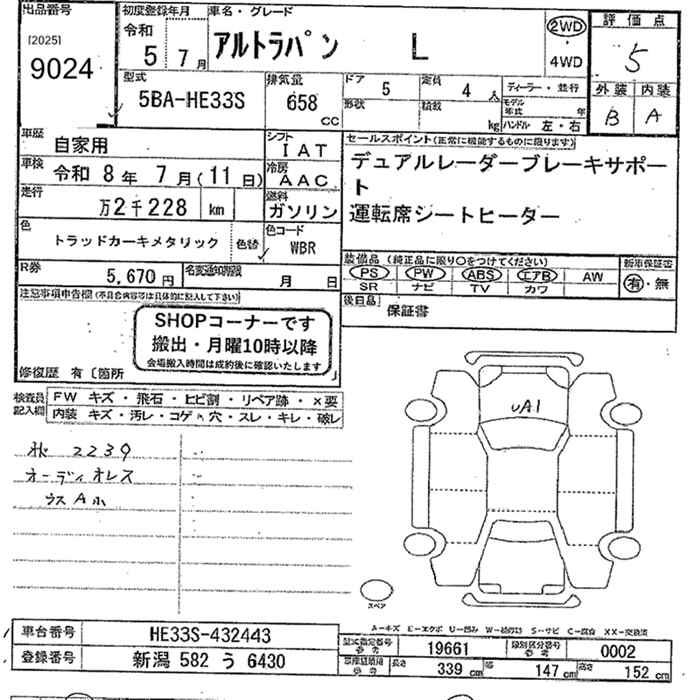 出品番号
[2025]
9024
初度登録年月
令和
5 7月
車名・グレード
アルトラパン L
2WD
・
4WD
評価点
5
外装 内装
B A
型式
5BA-HE33S
排気量
658
cc
ドア 5
形状
定員 4 人
積載 kg
ディーラー・並行
モデル年式 年
ハンドル 左・右
車歴
自家用
車検
令和 8年 7月(11日)
走行
万2千228 km
色
トラッドカーキメタリック
色替
シフト
IAT
冷房
AAC
燃料
ガソリン
色コード
WBR
R券
5,670円
名変通知期限
月 日
セールスポイント(正常に機能するものに限ります)
デュアルレーダーブレーキサポー
ト
運転席シートヒーター
装備品(純正品に限り○をつけてください)
PS PW ABS エアB AW
SR ナビ TV カワ
新車保証書
有・無
後日品
保証書
注意事項申告欄(不具合内容等は具体的に記入して下さい)
SHOPコーナーです
搬出・月曜10時以降
会場搬入時間は成約後に確認いたします
修復歴 有〔箇所 〕
検査員
記入欄
FW キズ・飛石・ヒビ割・リペア跡・×要
内装 キズ・汚レ・コゲ・穴・スレ・キレ・破レ
2239
オーディオレス
UA1
スペア
A-キズ E-エクボ U-凹み W-波打ち S-サビ C-腐食 XX-交換済
車台番号 HE33S-432443
登録番号 新潟 582 う 6430
型式指定番号
参考
19661
類別区分番号
参考
0002
車庫証明用
参考
長さ 339 cm
幅 147 cm
高さ 152 cm